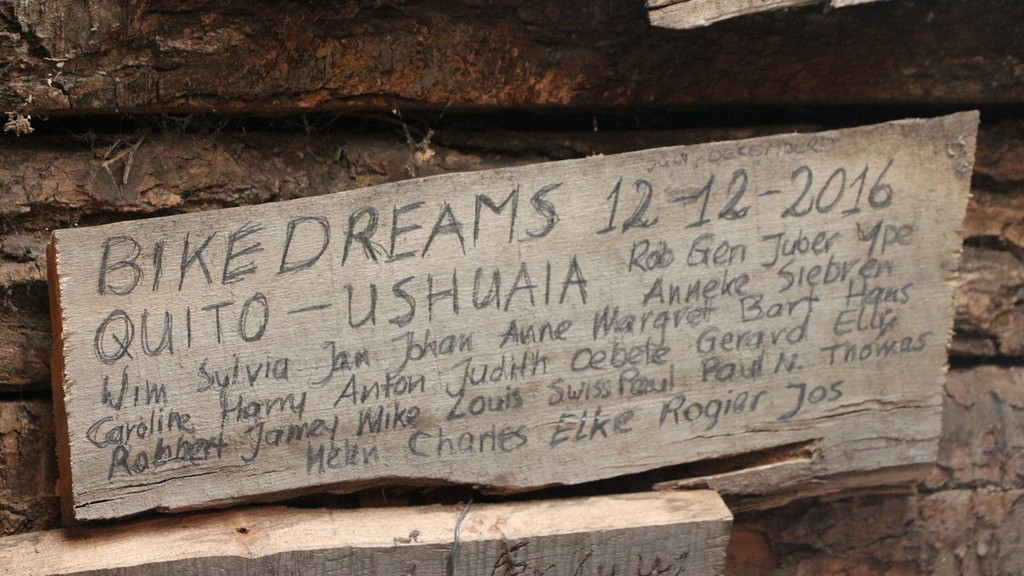 JULI, DECEMBER
BIKEDREAMS 12-12-2016
QUITO - USHUAIA Rob Gen Juber Ype
Wim Sylvia Jan Johan Anne Margret Anneke Siebren
Caroline Harry Anton Judith Oebele Bart Hans
Robbert Jamey Mike Louis Swiss Paul Gerard Elly
Helen Charles Elke Rogier Jos Paul N. Thomas